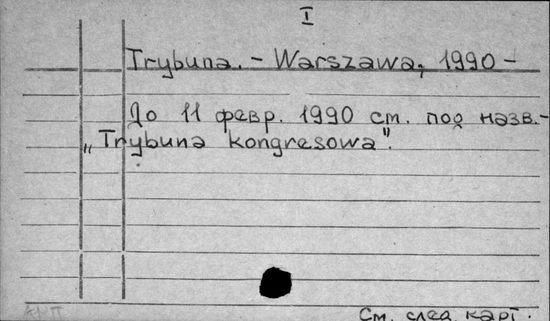 I
Trybuna. - Warszawa, 1990 -
До 11 февр. 1990 ст. под назв. -
„Trybuna kongresowa".
См. след. карт.